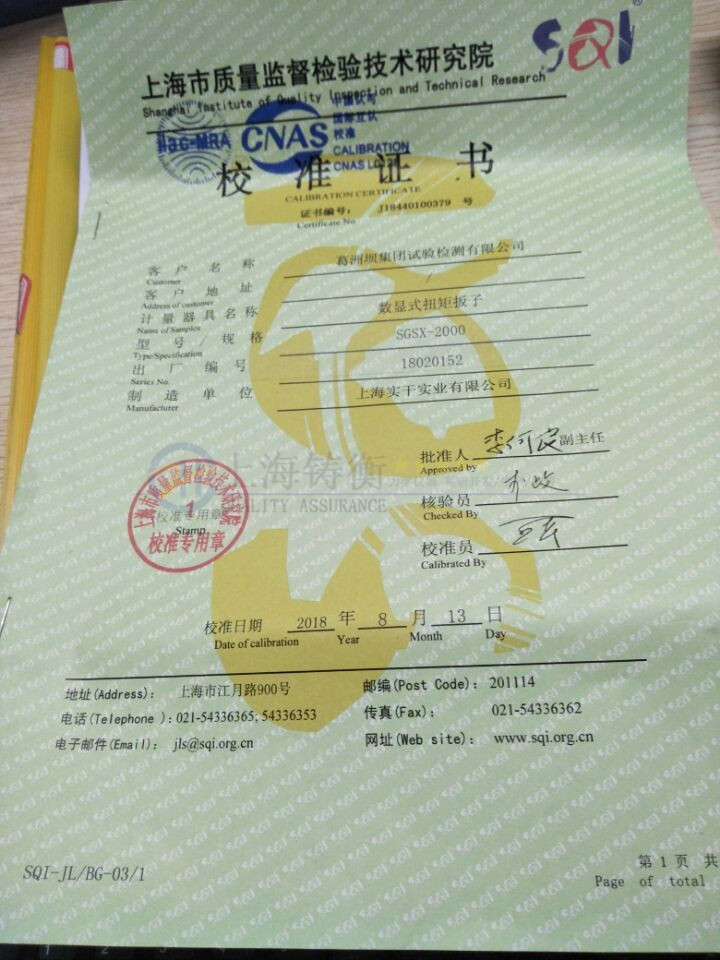 SQI
上海市质量监督检验技术研究院
Shanghai Institute of Quality Inspection and Technical Research
ilac-MRA
CNAS
中国认可
国际互认
校准
CALIBRATION
CNAS
校 准 证 书
CALIBRATION CERTIFICATE
证书编号： J18440100379 号
Certificate No
客户名称 葛洲坝集团试验检测有限公司
Customer
客户地址 /
Address of customer
计量器具名称 数显式扭矩扳子
Name of Samples
型号/规格 SGSX-2000
Type/Specification
出厂编号 18020152
Series No.
制造单位 上海实干实业有限公司
Manufacturer
批准人 副主任
Approved by
上海铸衡
QUALITY ASSURANCE
核验员
Checked By
上海市质量监督检验技术研究院
1
校准专用章
Stamp
校准专用章
校准员
Calibrated By
校准日期 2018 年 8 月 13 日
Date of calibration Year Month Day
地址(Address)： 上海市江月路900号 邮编(Post Code)： 201114
电话(Telephone )：021-54336365, 54336353 传真(Fax)： 021-54336362
电子邮件(Email)： jls@sqi.org.cn 网址(Web site)： www.sqi.org.cn
SQI-JL/BG-03/1
第 1 页 共
Page of total